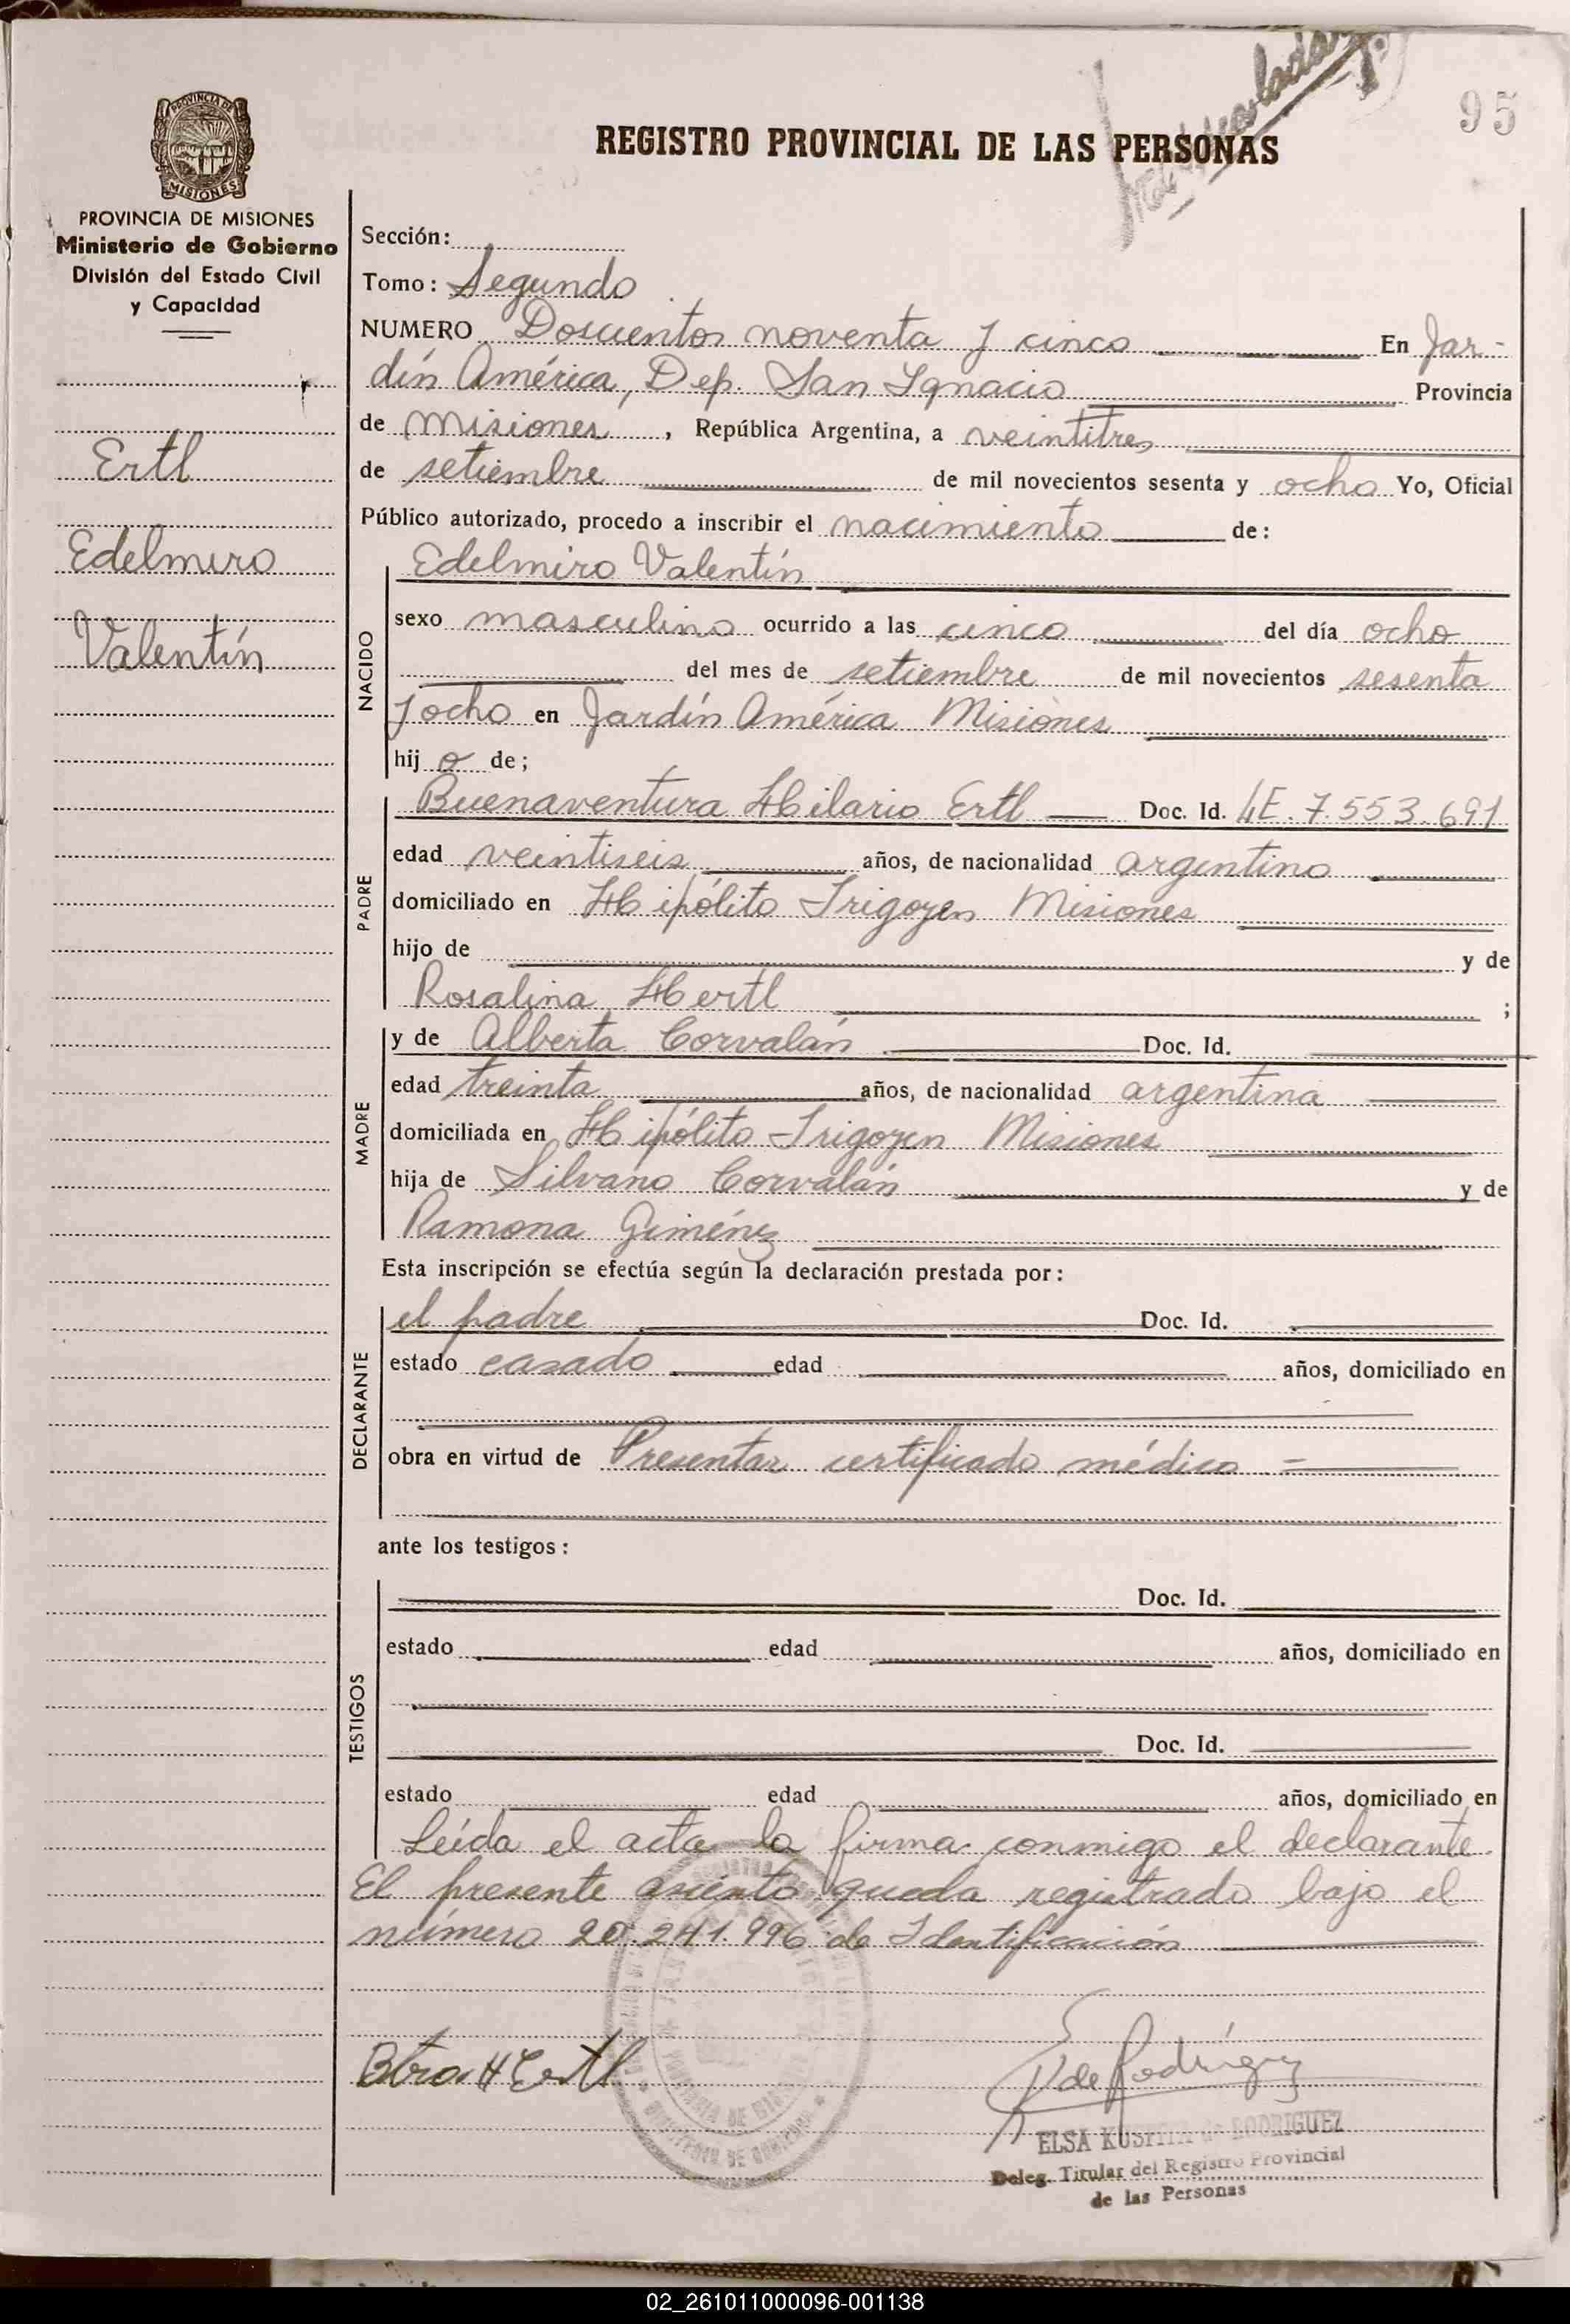 95
PROVINCIA DE
MISIONES
REGISTRO PROVINCIAL DE LAS PERSONAS
PROVINCIA DE MISIONES
Ministerio de Gobierno
División del Estado Civil
y Capacidad
Ertl
Edelmiro
Valentín
Sección:
Tomo: Segundo
NUMERO Doscientos noventa y cinco En Jar-
dín América, Dep. San Ignacio Provincia
de Misiones, República Argentina, a veintitres
de setiembre de mil novecientos sesenta y ocho Yo, Oficial
Público autorizado, procedo a inscribir el nacimiento de:
NACIDO
Edelmiro Valentín
sexo masculino ocurrido a las cinco del día ocho
del mes de setiembre de mil novecientos sesenta
y ocho en Jardín América Misiones
hijo de;
PADRE
Buenaventura Hilario Ertl Doc. Id. LE. 7.553.691
edad veintiseis años, de nacionalidad argentino
domiciliado en Hipólito Irigoyen Misiones
hijo de y de
Rosalina Hertl ;
MADRE
y de Alberta Corvalán Doc. Id.
edad treinta años, de nacionalidad argentina
domiciliada en Hipólito Irigoyen Misiones
hija de Silvano Corvalán y de
Ramona Giménez
Esta inscripción se efectúa según la declaración prestada por:
DECLARANTE
el padre Doc. Id.
estado casado edad años, domiciliado en
obra en virtud de Presentar certificado médico =
ante los testigos:
TESTIGOS
Doc. Id.
estado edad años, domiciliado en
Doc. Id.
estado edad años, domiciliado en
Leída el acta la firma conmigo el declarante.
El presente asiento queda registrado bajo el
número 20.241.996 de Identificación
Btra H Ertl
de Rodríguez
ELSA de RODRIGUEZ
Deleg. Titular del Registro Provincial
de las Personas
02_261011000096-001138